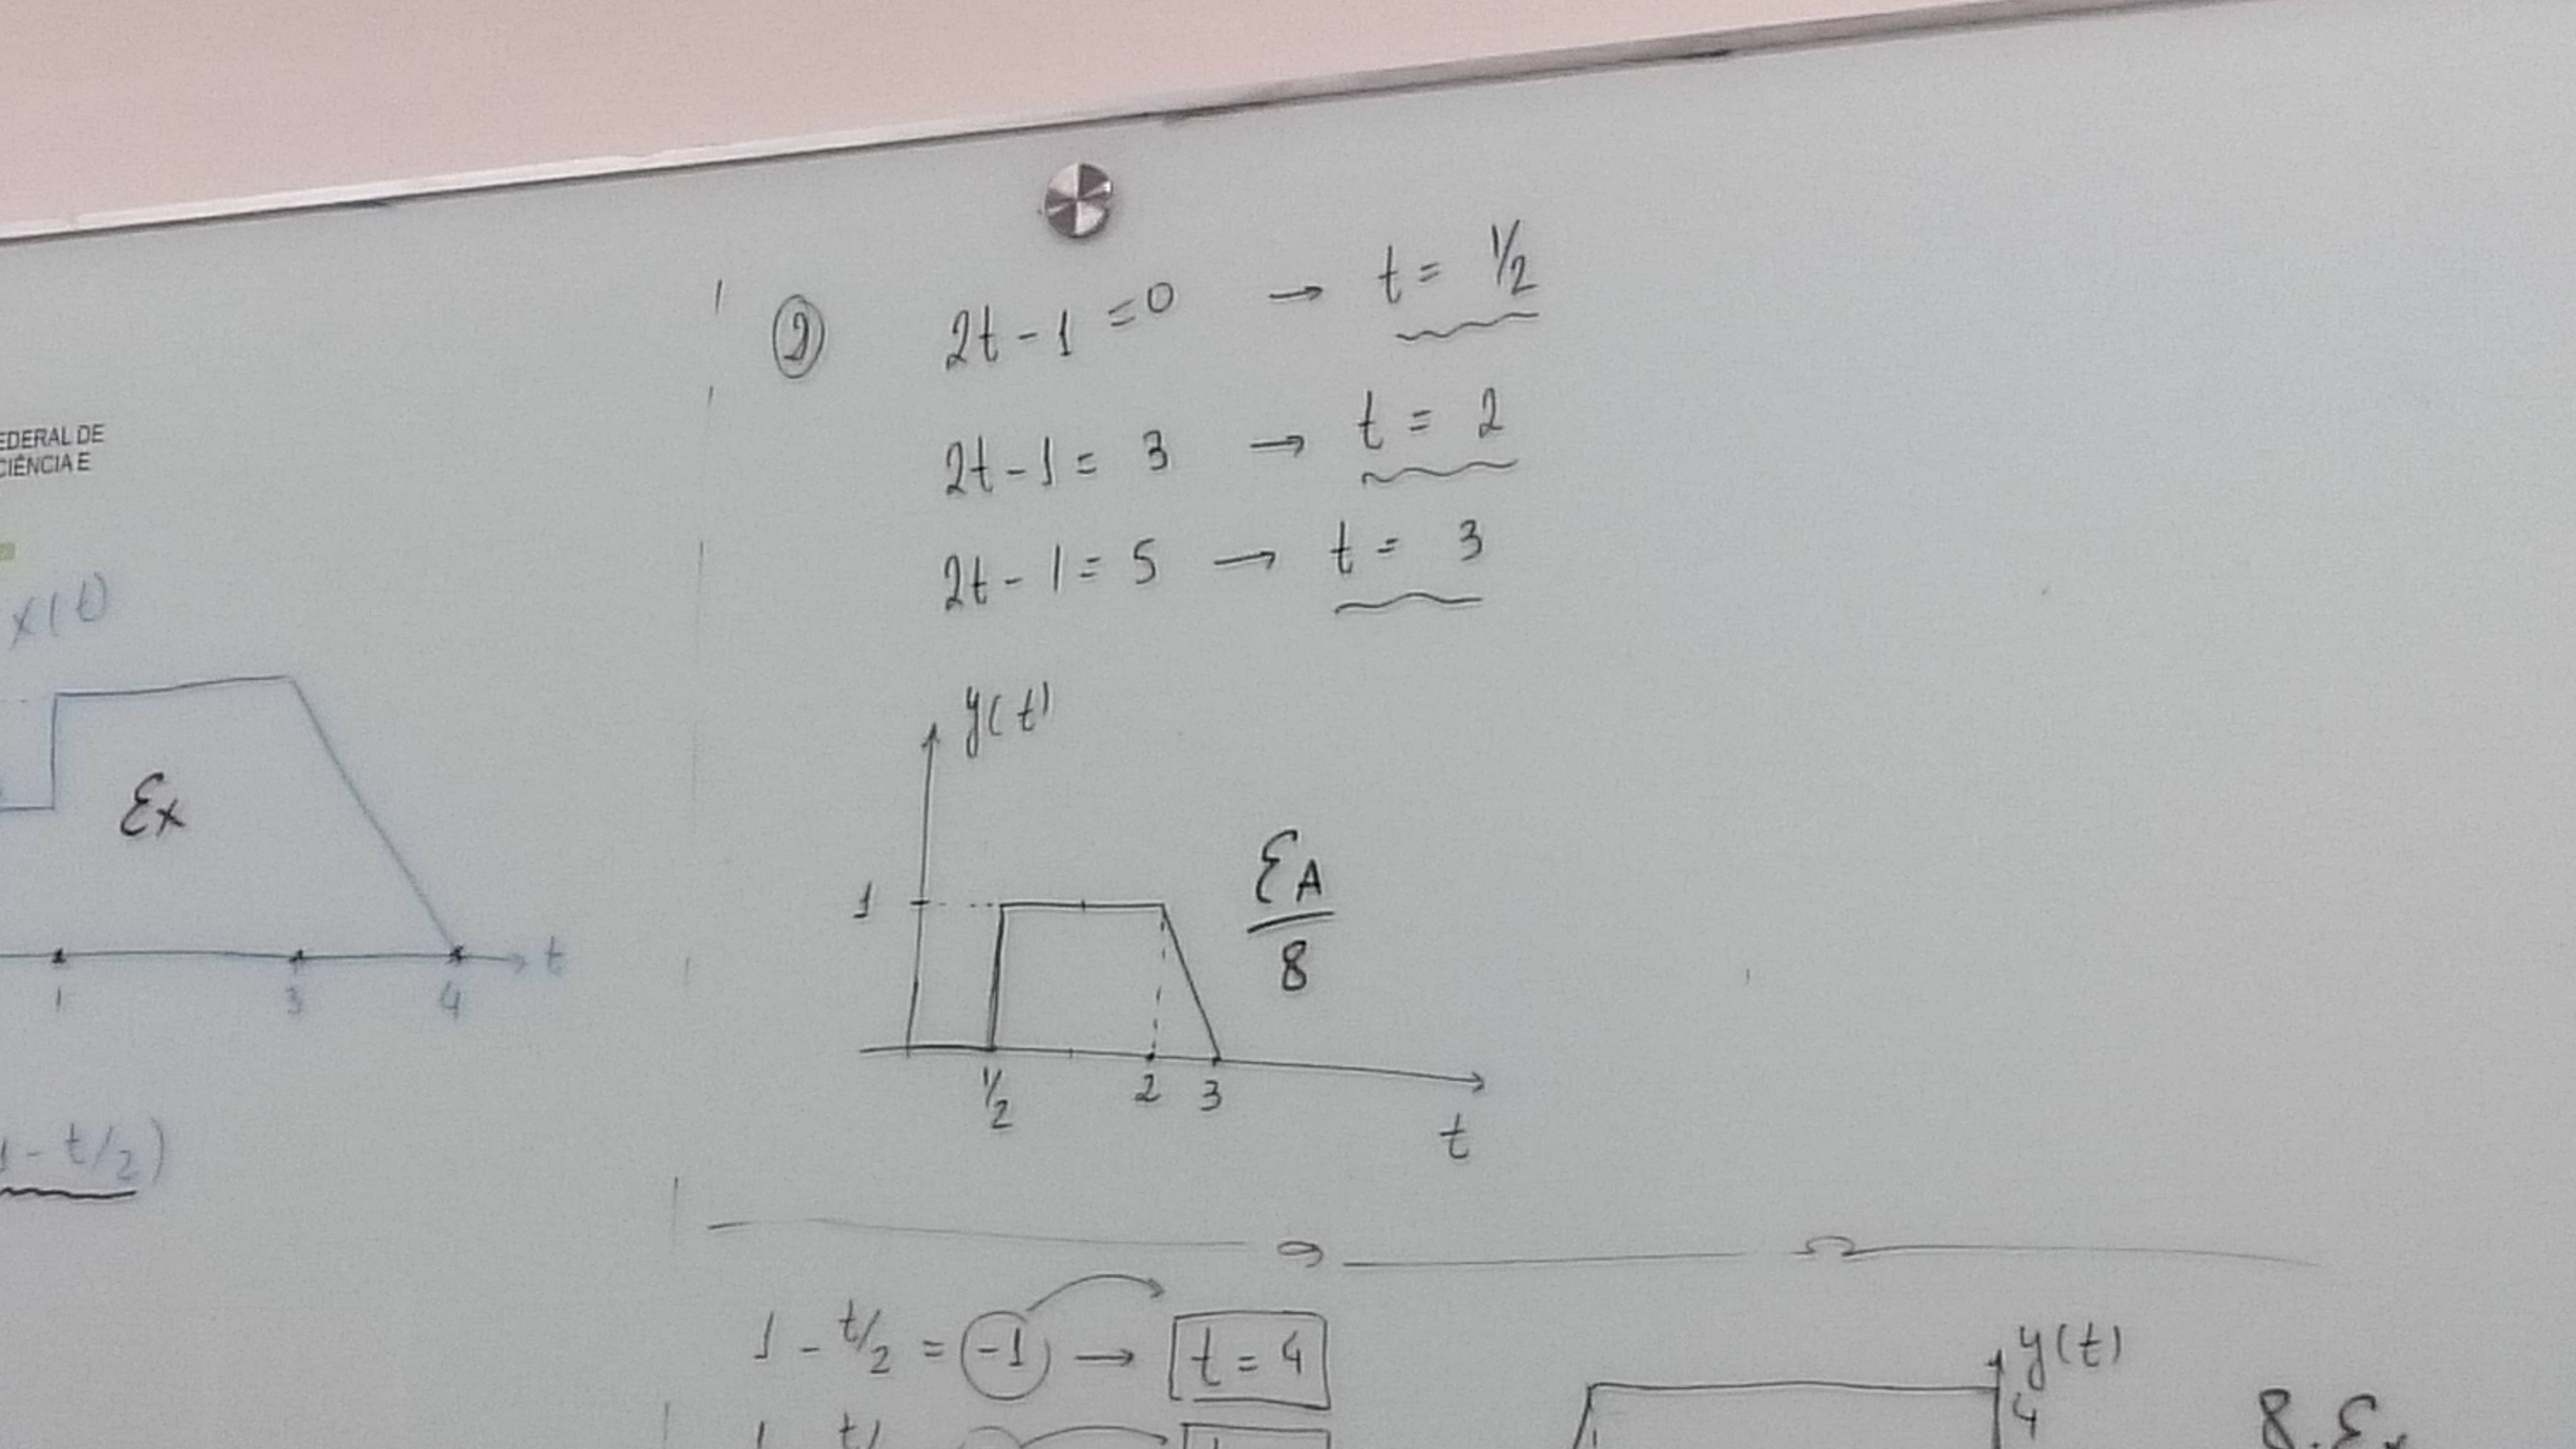 EDERAL DE
CIÊNCIA E
x(t)
Ex
1 3 4 t
1 - t/2)
② 2t - 1 = 0 → t = 1/2
2t - 1 = 3 → t = 2
2t - 1 = 5 → t = 3
y(t)
1
EA
8
1/2 2 3
t
1 - t/2 = -1 → t = 4
y(t)
4
8.Ex